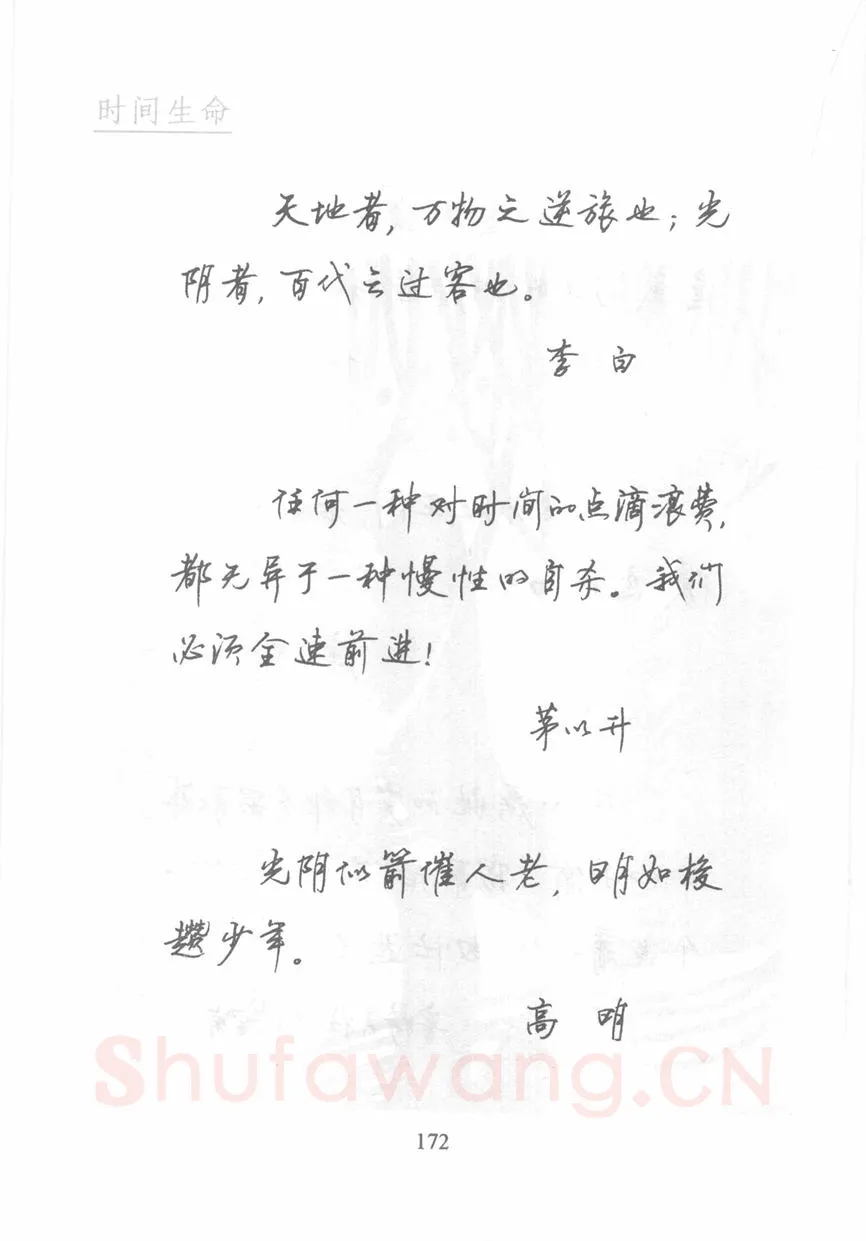 时间生命
天地者,万物之逆旅也;光
阴者,百代之过客也。
李 白
任何一种对时间的点滴浪费,
都无异于一种慢性的自杀。我们
必须全速前进!
茅以升
光阴似箭催人老,日月如梭
趱少年。
高 明
Shufawang.CN
172